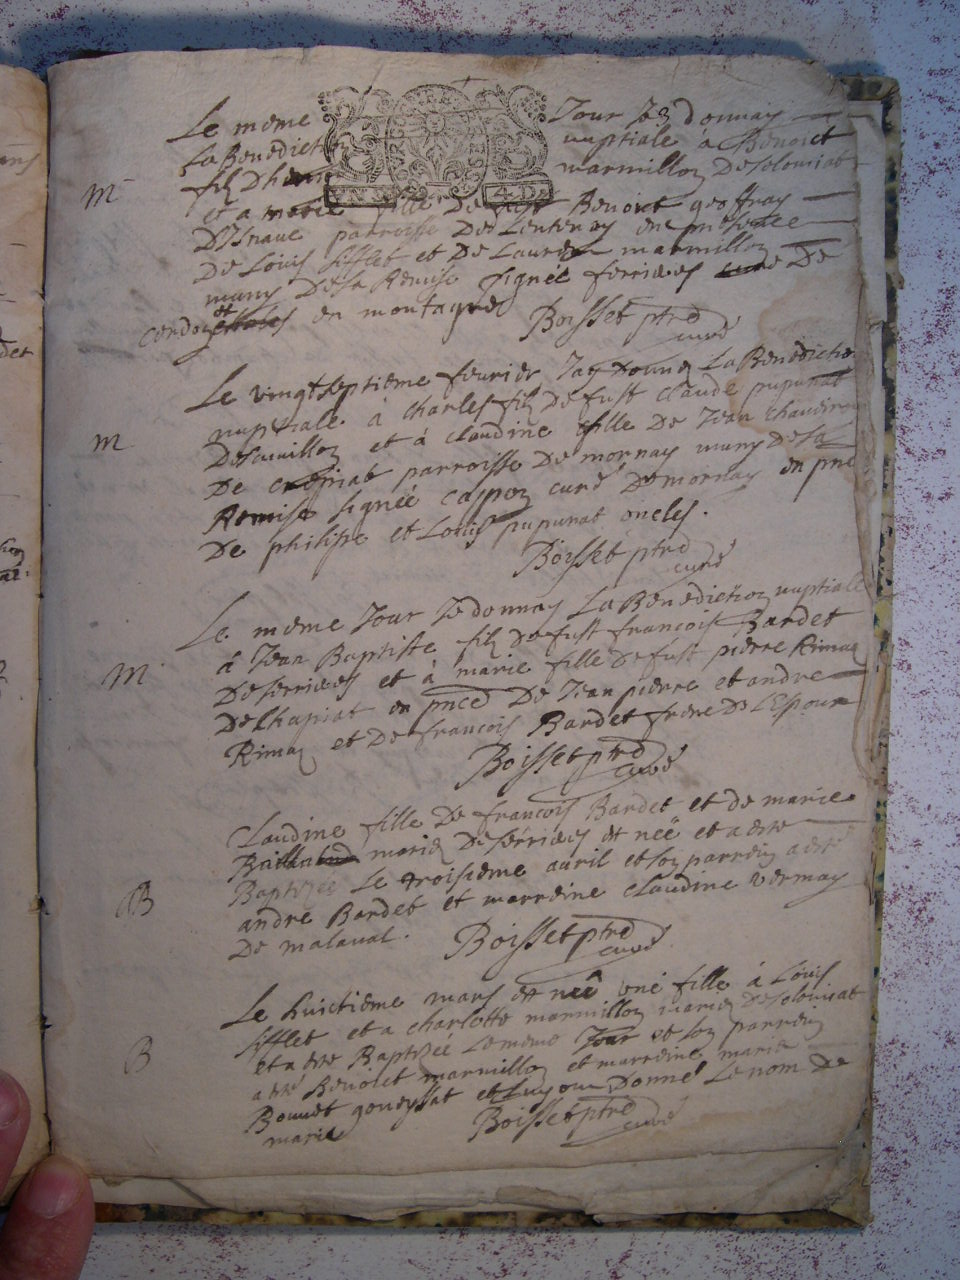 Le meme Jour Je donnay
La Benediction nuptiale à Benoict
M filz D'h marmilloz De soloniat
et a marie fille De fust Benoict geoffray
parroisse De Lentenay en presence
De Louis sifflet et De Laurens marmilloz
muny De sa Remise signée ferrieres curé De
et en montagne
Boisset ptre
curé
Le vingtseptieme feurier Jay donné La Benediction
nuptiale à Charles filz De fust Claude pupunat
M De et à claudine fille De Jean
De parroisse De mornay muny De sa
Remise signée curé De mornay en pnce
De philippe et Louis pupunat oncles.
Boisset ptre
curé
Le meme Jour Je donnay La Benediction nuptiale
à Jean Baptiste filz De fust francois Bardet
M De serrieres et à marie fille De fust pierre Rimaz
De Chapiat en pnce De Jean pierre et andre
Rimaz et De francois Bardet frere De L'Epoux
Boisset ptre
curé
Claudine fille De francois Bardet et de marie
mariez De serrieres et neë et a este
Baptizée Le troisieme auril et soz parrein a esté
B andre Bardet et marreine claudine vermay
De malaval.
Boisset ptre
curé
Le huictieme mars et neê une fille à Louis
sifflet et a charlotte marmilloz mariez De soloniat
et a este Baptizée Le meme Jour et soz parrein
B a esté Benoict marmilloz et marreine marie
Bouuet et Luy ont Donné Le nom de
marie
Boisset ptre
curé